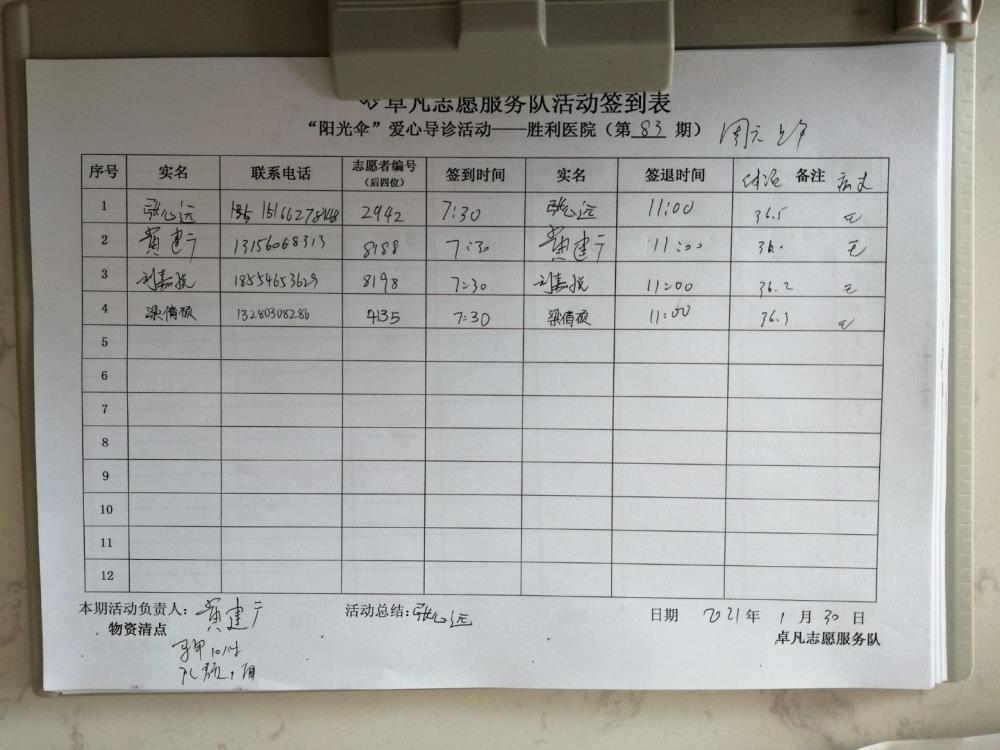 卓凡志愿服务队活动签到表
“阳光伞”爱心导诊活动——胜利医院（第 83 期）
序号 实名 联系电话 志愿者编号（后四位） 签到时间 实名 签退时间 体温 备注
1 张心远 15166278448 2942 7:30 张心远 11:00 36.5 无
2 黄建广 13156068313 8188 7:30 黄建广 11:00 36. 无
3 刘嘉悦 18554653629 8198 7:30 刘嘉悦 11:00 36.2 无
4 梁倩硕 13280308286 4135 7:30 梁倩硕 11:00 36.3 无
5
6
7
8
9
10
11
12
本期活动负责人：黄建广 活动总结：张心远 日期 2021 年 1 月 30 日
物资清点 卓凡志愿服务队